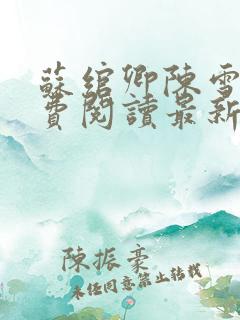 蘇綰卿陳雪
費閱讀最新
陳振豪
未任同意禁止轉載